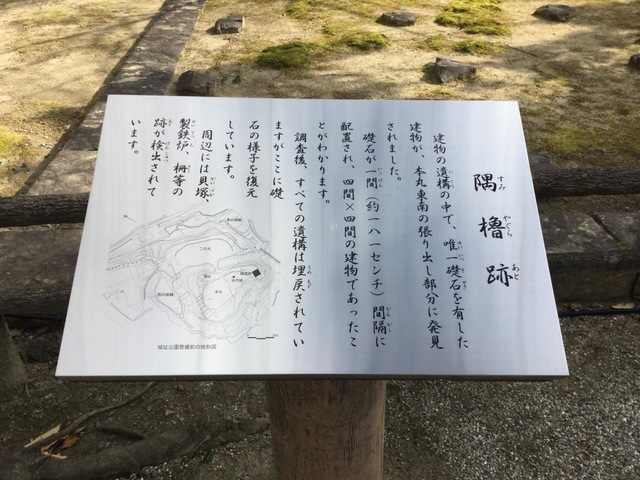 隅櫓跡
建物の遺構の中で、唯一礎石を有した
建物が、本丸東南の張り出し部分に発見
されました。
礎石が一間(約一八一センチ)間隔に
配置され、四間×四間の建物であったこ
とがわかります。
調査後、すべての遺構は埋戻されてい
ますがここに礎
石の様子を復元
しています。
周辺には貝塚、
製鉄炉、柵等の
跡が検出されて
います。
城址公園整備前の地形図